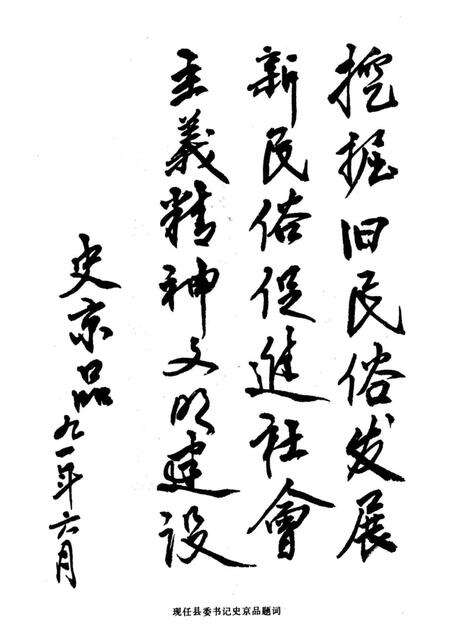 挖掘旧民俗发展
新民俗促進社會
主義精神文明建设
史京品
九一年六月
现任县委书记史京品题词